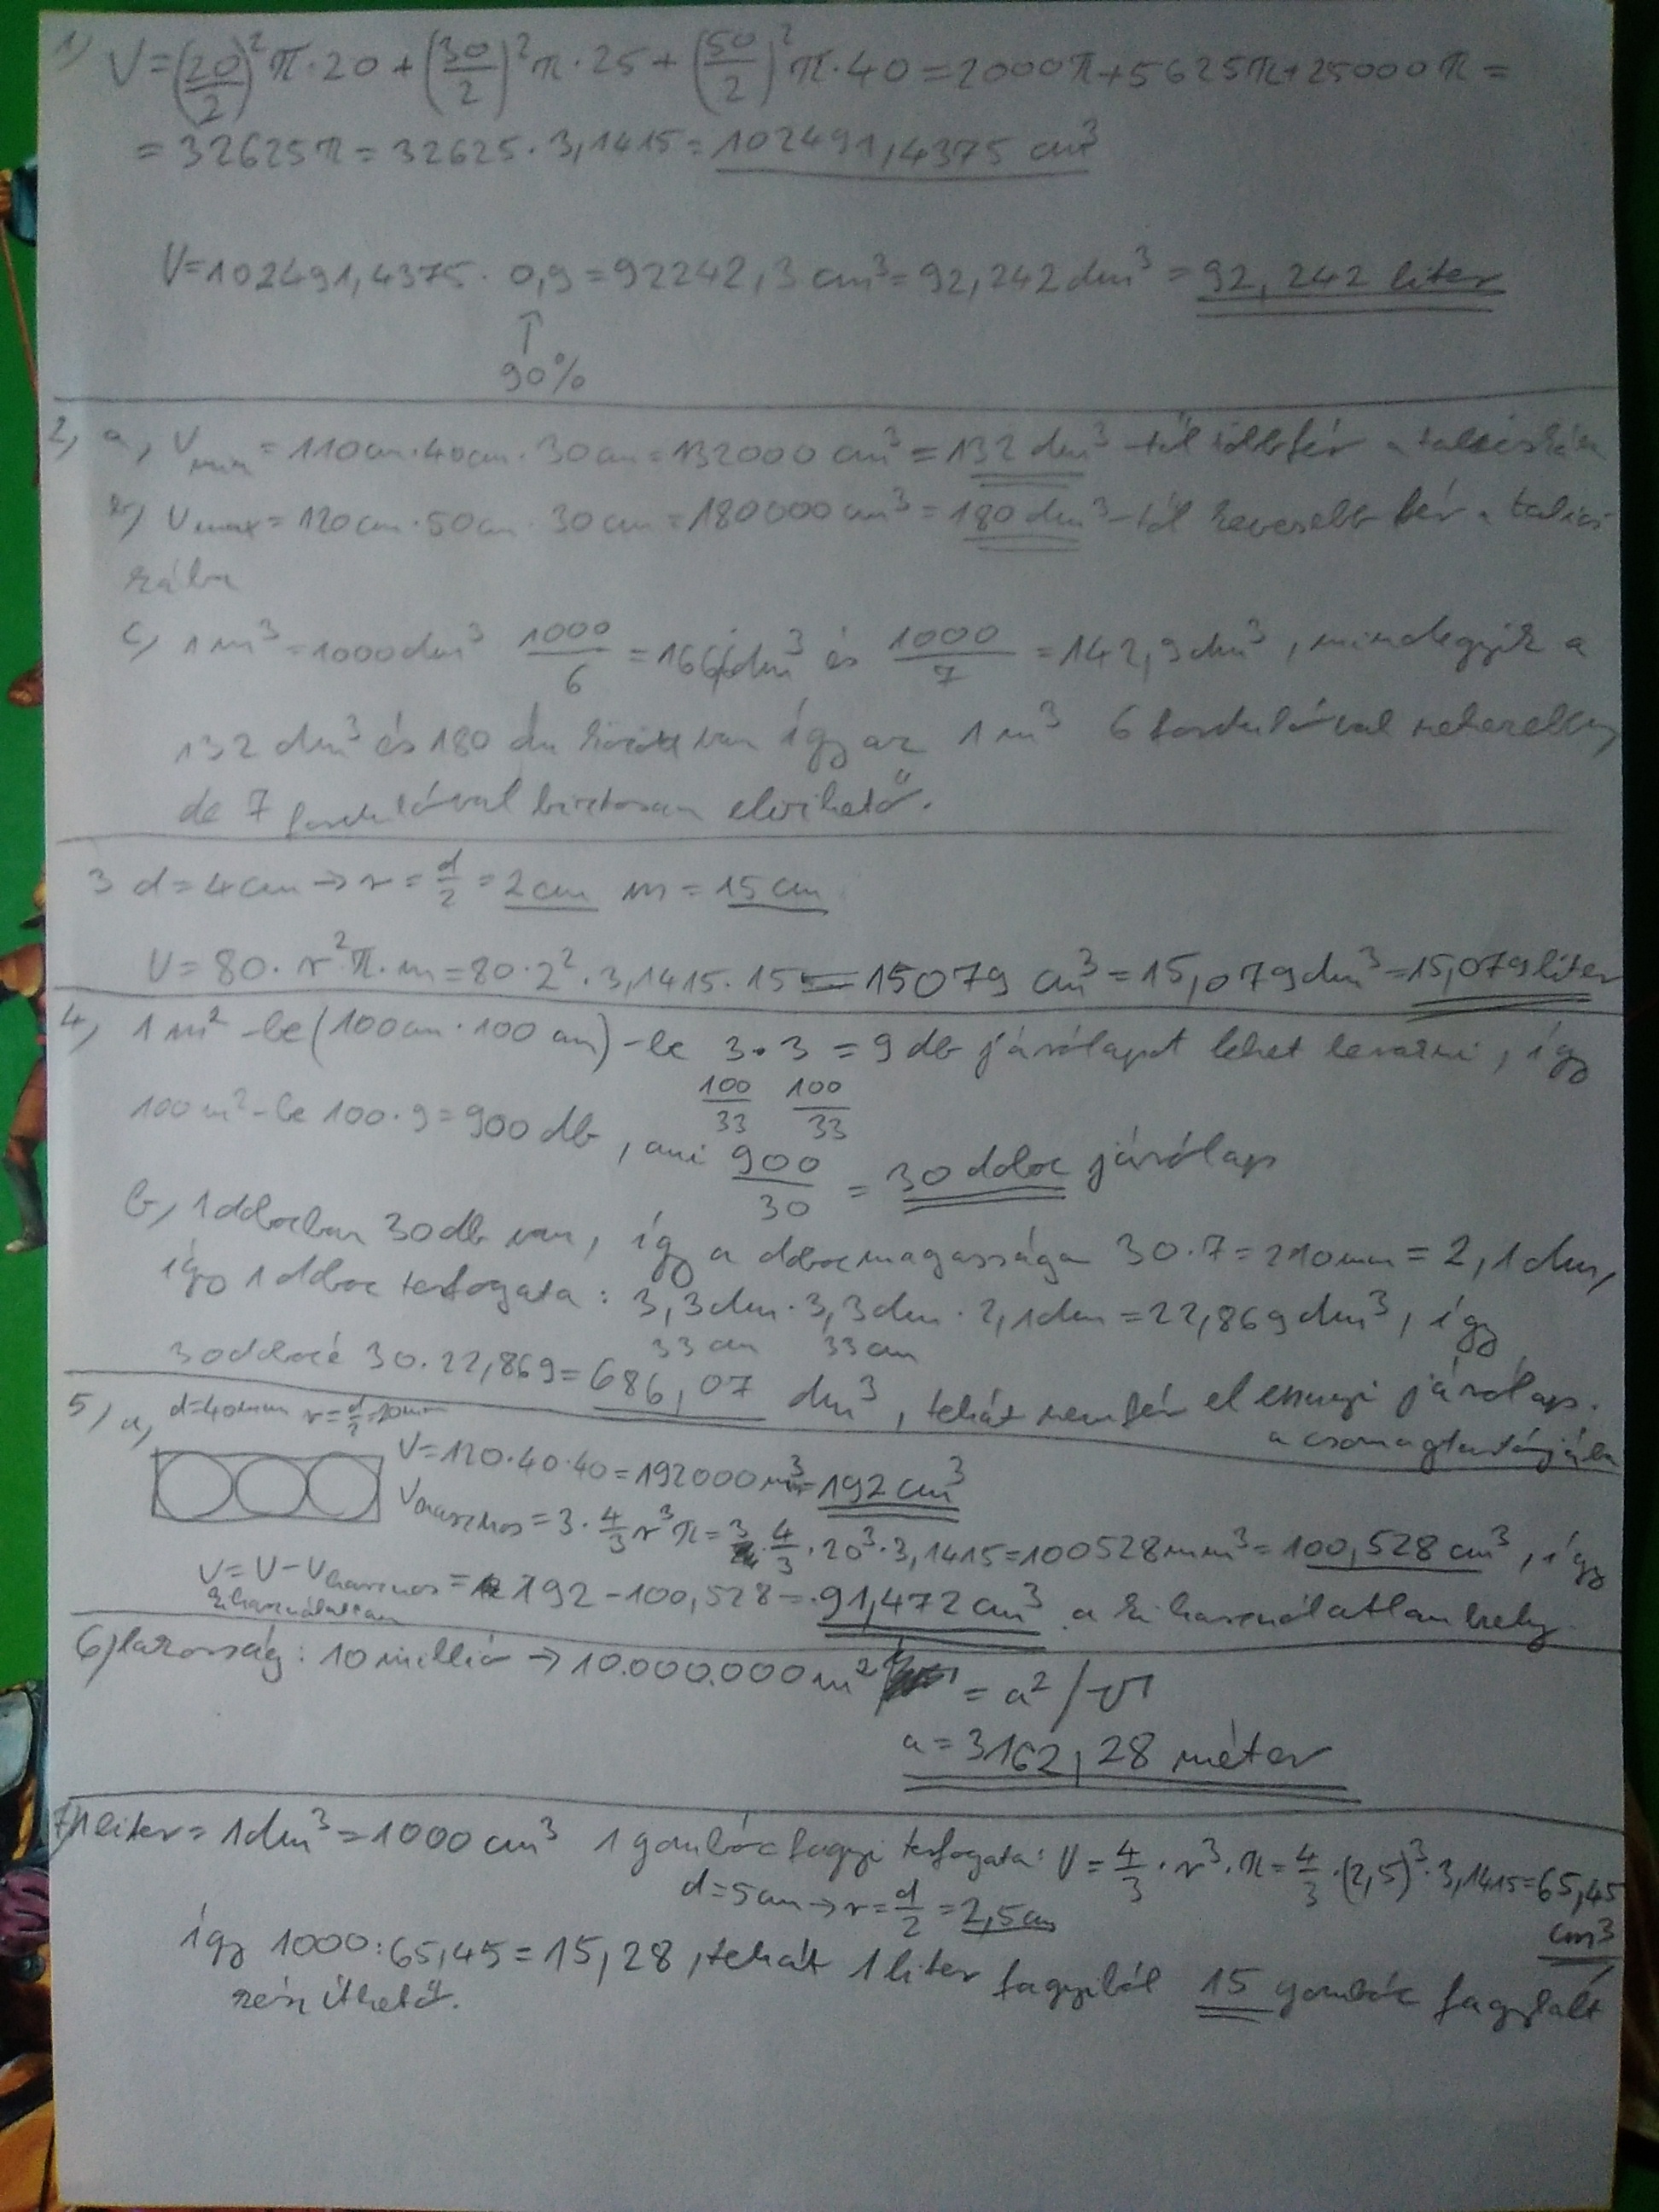 1) V=(20/2)²π·20+(30/2)²π·25+(50/2)²π·40=2000π+5625π+25000π=
=32625π=32625·3,1415=102491,4375 cm³
V=102491,4375·0,9=92242,3 cm³=92,242 dm³=92,242 liter
↑
90%
2, a, Vmin=110cm·40cm·30cm=132000 cm³=132 dm³-től több fér a talicskába
b, Vmax=120cm·50cm·30cm=180000cm³=180dm³-től kevesebb fér a talics
kába
c, 1m³=1000dm³ 1000/6=166dm³ és 1000/7=142,9dm³, mindegyik a
132 dm³ és 180 dm között van így az 1m³ 6 fordulóval nehezebben
de 7 fordulóval biztosan elvihető.
3 d=4cm→r=d/2=2cm m=15cm
V=80·r²π·m=80·2²·3,1415·15=15079 cm³=15,079dm³=15,079liter
4, 1m²-be(100cm·100cm)-be 3·3=9db járólapot lehet lerakni, így
100/33 100/33
100m²-be 100·9=900db, ami 900/30=30 doboz járólap
b, 1dobozban 30db van, így a doboz magassága 30·7=210mm=2,1dm,
így 1doboz térfogata: 3,3dm·3,3dm·2,1dm=22,869dm³, így
33cm 33cm
30dobozé 30·22,869=686,07 dm³, tehát nem fér el ennyi járólap.
a csomagtartójába
5, a, d=40mm r=d/2=20mm
V=120·40·40=192000mm³=192cm³
Vhasznos=3·4/3r³π=3·4/3·20³·3,1415=100528mm³=100,528cm³, így
V=V-Vhasznos=192-100,528=91,472cm³ a kihasználatlan hely.
kihasználatlan
6, lakosság: 10 millió→10.000.000m²=a²/√
a=3162,28 méter
7, 1liter=1dm³=1000cm³ 1 gombóc fagyi térfogata: V=4/3·r³·π=4/3·(2,5)³·3,1415=65,45
cm³
d=5cm→r=d/2=2,5cm
így 1000:65,45=15,28, tehát 1liter fagyiból 15 gombóc fagylalt
készíthető.